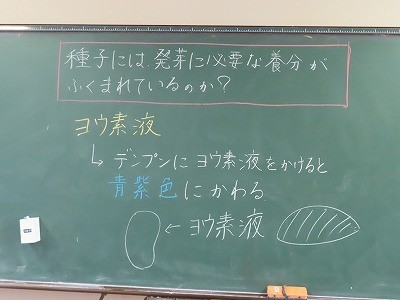 種子には、発芽に必要な養分が
ふくまれているのか?
ヨウ素液
↳ デンプンにヨウ素液をかけると
青紫色にかわる
← ヨウ素液